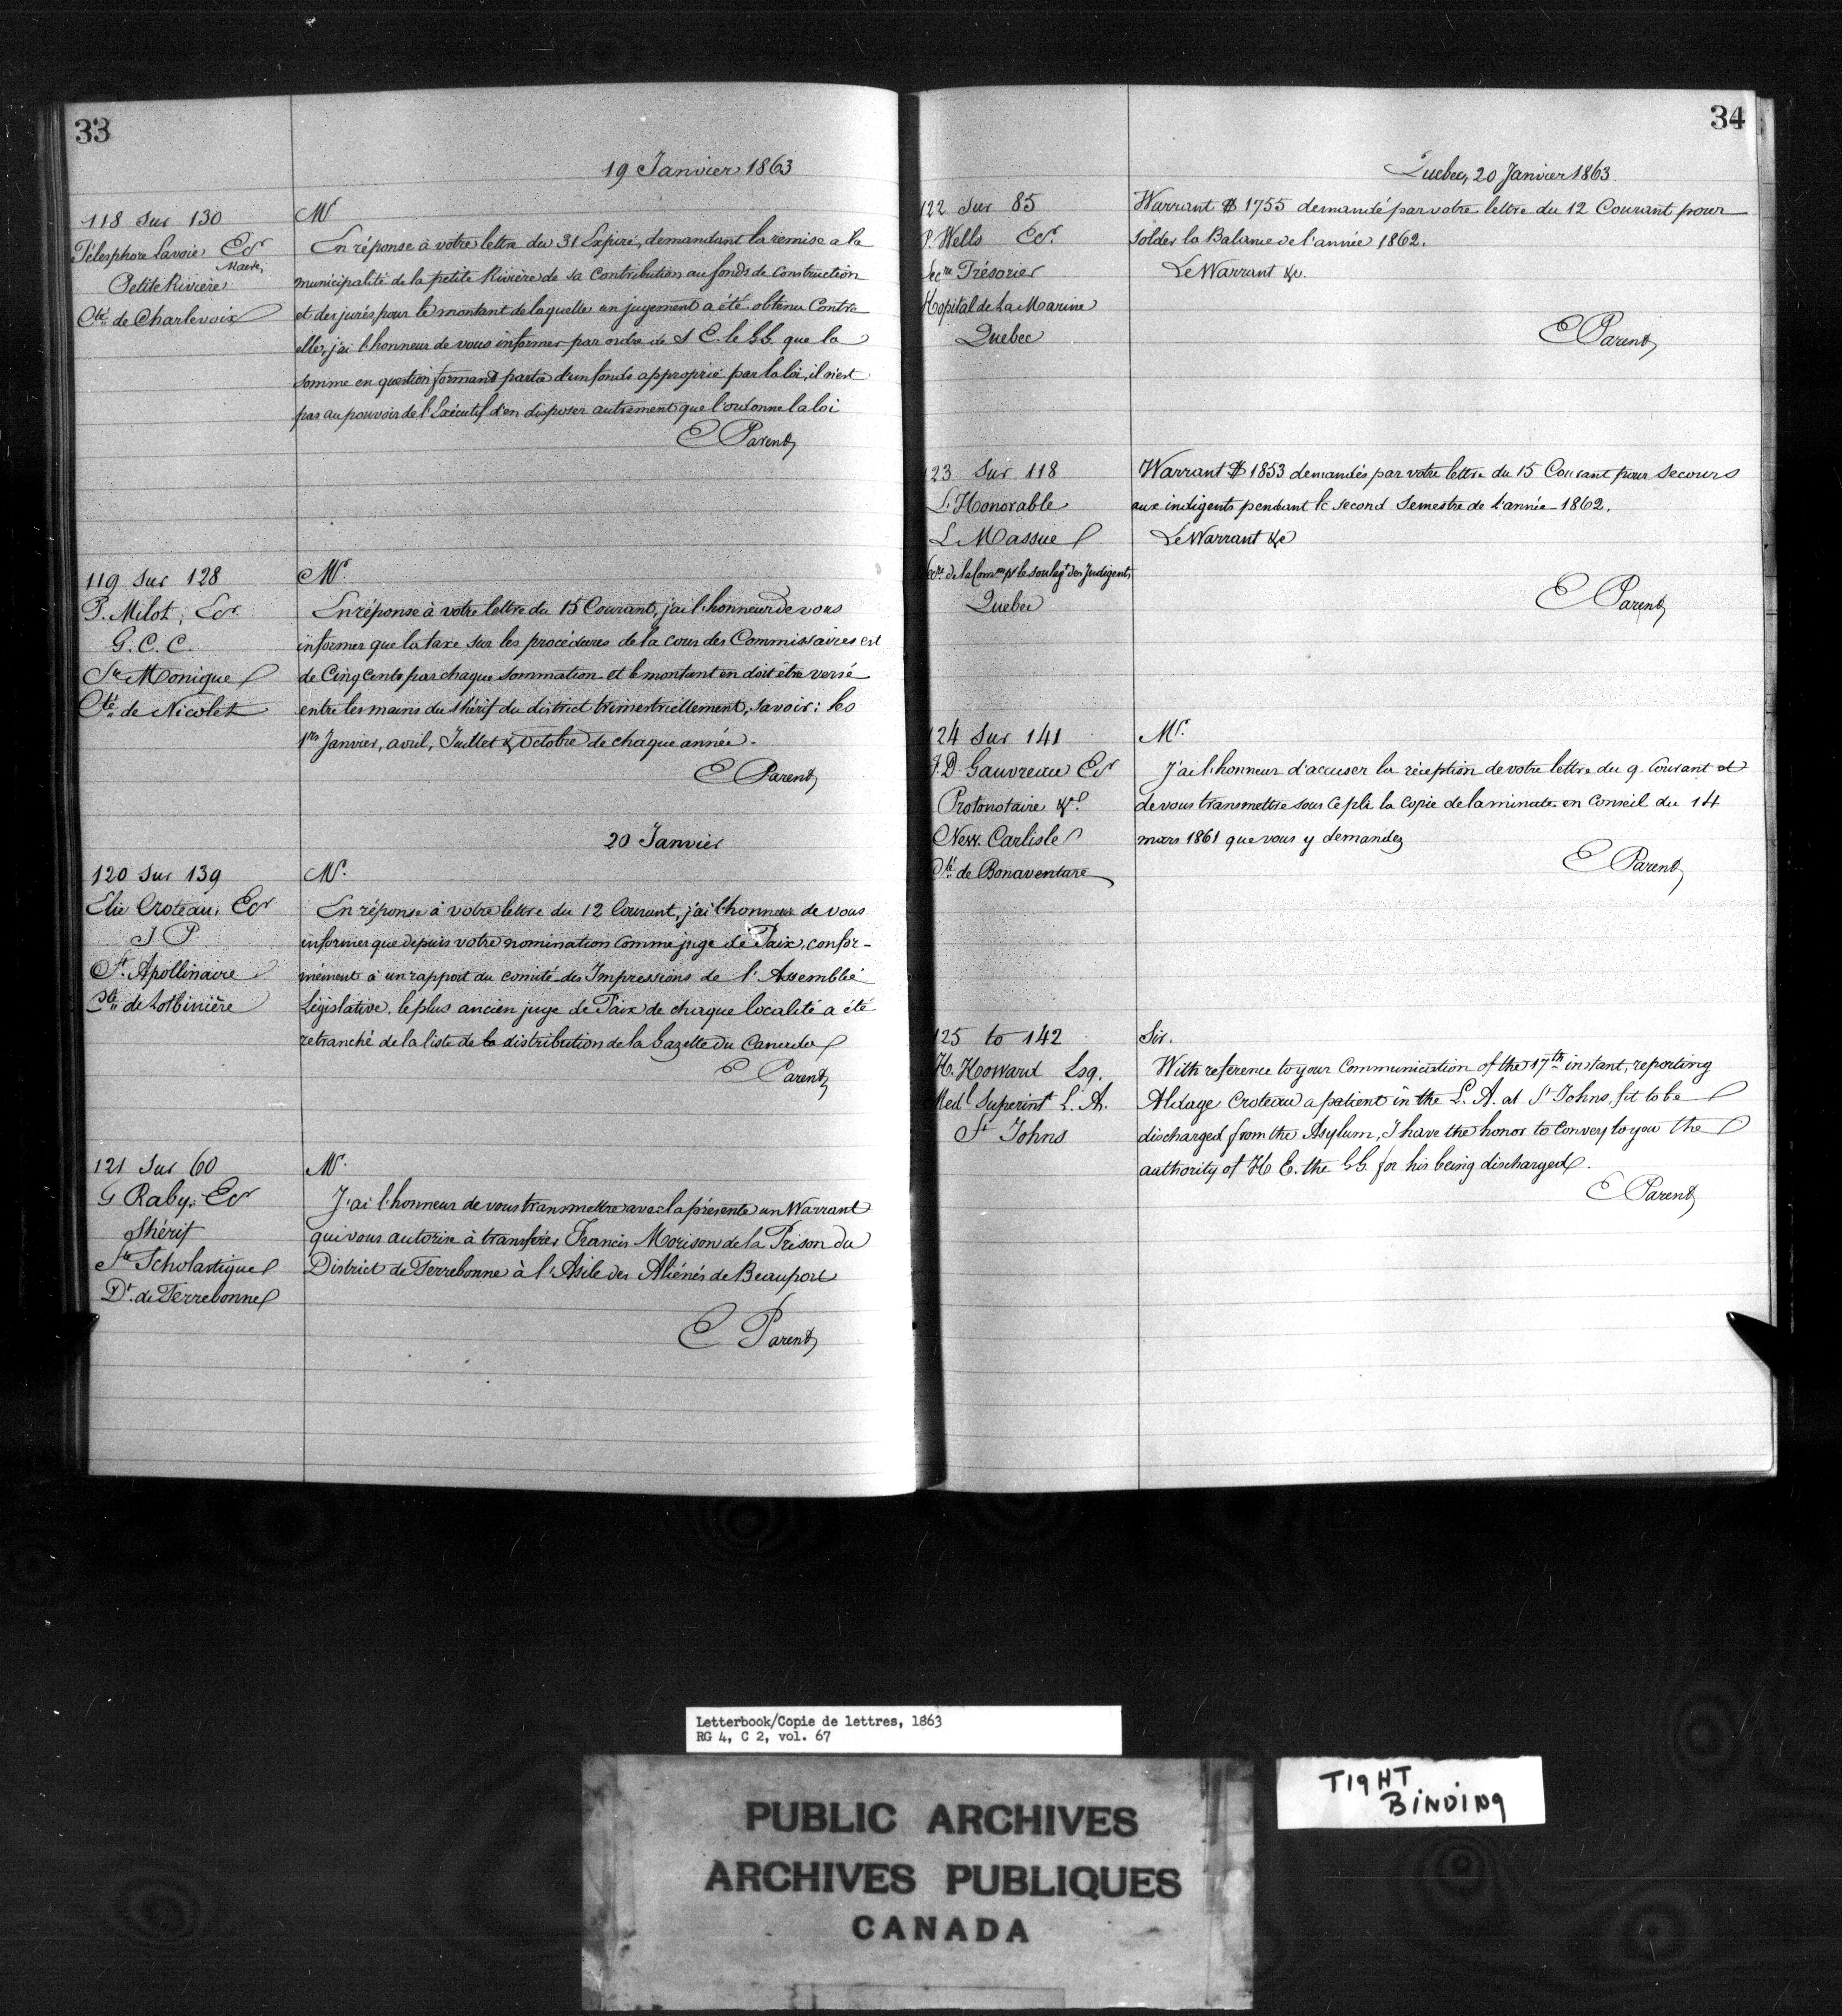 33
19 Janvier 1863
118 Sur 130
Télesphore Lavoie Ecr
Maire
Petite Rivière
Cté de Charlevoix
Mr
En réponse à votre lettre du 31 Expiré, demandant la remise a la
municipalité de la petite Rivière de sa Contribution au fonds de Construction
et des jurés pour le montant de laquelle un jugement a été obtenu Contre
elle, j'ai l'honneur de vous informer par ordre de S E. le G.G. que la
somme en question formant partie d'un fonds approprié par la loi, il n'est
pas au pouvoir de l'Exécutif d'en disposer autrement que l'ordonne la loi
E Parent
119 Sur 128
P. Milot, Ecr
G. C. C.
Ste Monique
Cté de Nicolet
Mr.
En réponse à votre lettre du 15 Courant, j'ai l'honneur de vous
informer que la taxe sur les procédures de la cour des Commissaires est
de Cinq Cents par chaque sommation et le montant en doit être versé
entre les mains du shérif du district trimestriellement, savoir: les
1ers Janvier, avril, Juillet & Octobre de chaque année.
E Parent
20 Janvier
120 Sur 139
Elie Croteau, Ecr
J P
St. Apollinaire
Cté de Lotbinière
Mr.
En réponse à votre lettre du 12 Courant, j'ai l'honneur de vous
informer que depuis votre nomination comme juge de Paix, confor-
mément à un rapport du comité des Impressions de l'Assemblée
Législative, le plus ancien juge de Paix de chaque localité a été
retranché de la liste de la distribution de la Gazette du Canada
E Parent
121 Sur 60
G Raby, Ecr
Shérif
Ste Scholastique
Dt. de Terrebonne
Mr.
J'ai l'honneur de vous transmettre avec la présente un Warrant
qui vous autorise à transférer Francis Morison de la Prison du
District de Terrebonne à l'Asile des Aliénés de Beauport
E Parent
34
Quebec, 20 Janvier 1863.
122 Sur 85
P. Wells Ecr.
Secre Trésorier
Hopital de la Marine
Quebec
Warrant $ 1755 demandé par votre lettre du 12 Courant pour
solder la Balance de l'année 1862.
Le Warrant &c.
E Parent
123 Sur 118
L'Honorable
L Massue
Secre. de la Comon pr le soulagt des Indigents
Quebec
Warrant $ 1853 demandés par votre lettre du 15 Courant pour secours
aux indigents pendant le second Semestre de l'année 1862.
Le Warrant &c
E Parent
124 Sur 141
J. D. Gauvreau Ecr
Protonotaire &c.
New. Carlisle
Cté de Bonaventure
Mr.
J'ai l'honneur d'accuser la réception de votre lettre du 9. Courant et
de vous transmettre sous ce pli la copie de la minute en Conseil du 14
mars 1861 que vous y demandez
E Parent
125 to 142
H. Howard Esq.
Medl Superintt L. A.
St Johns
Sir.
With reference to your Communication of the 17th instant, reporting
Aldage Croteau a patient in the L. A. at St Johns, fit to be
discharged from the Asylum, I have the honor to convey to you the
authority of H E. the G.G. for his being discharged.
E Parent
Letterbook/Copie de lettres, 1863
RG 4, C 2, vol. 67
TIGHT
BINDING
PUBLIC ARCHIVES
ARCHIVES PUBLIQUES
CANADA